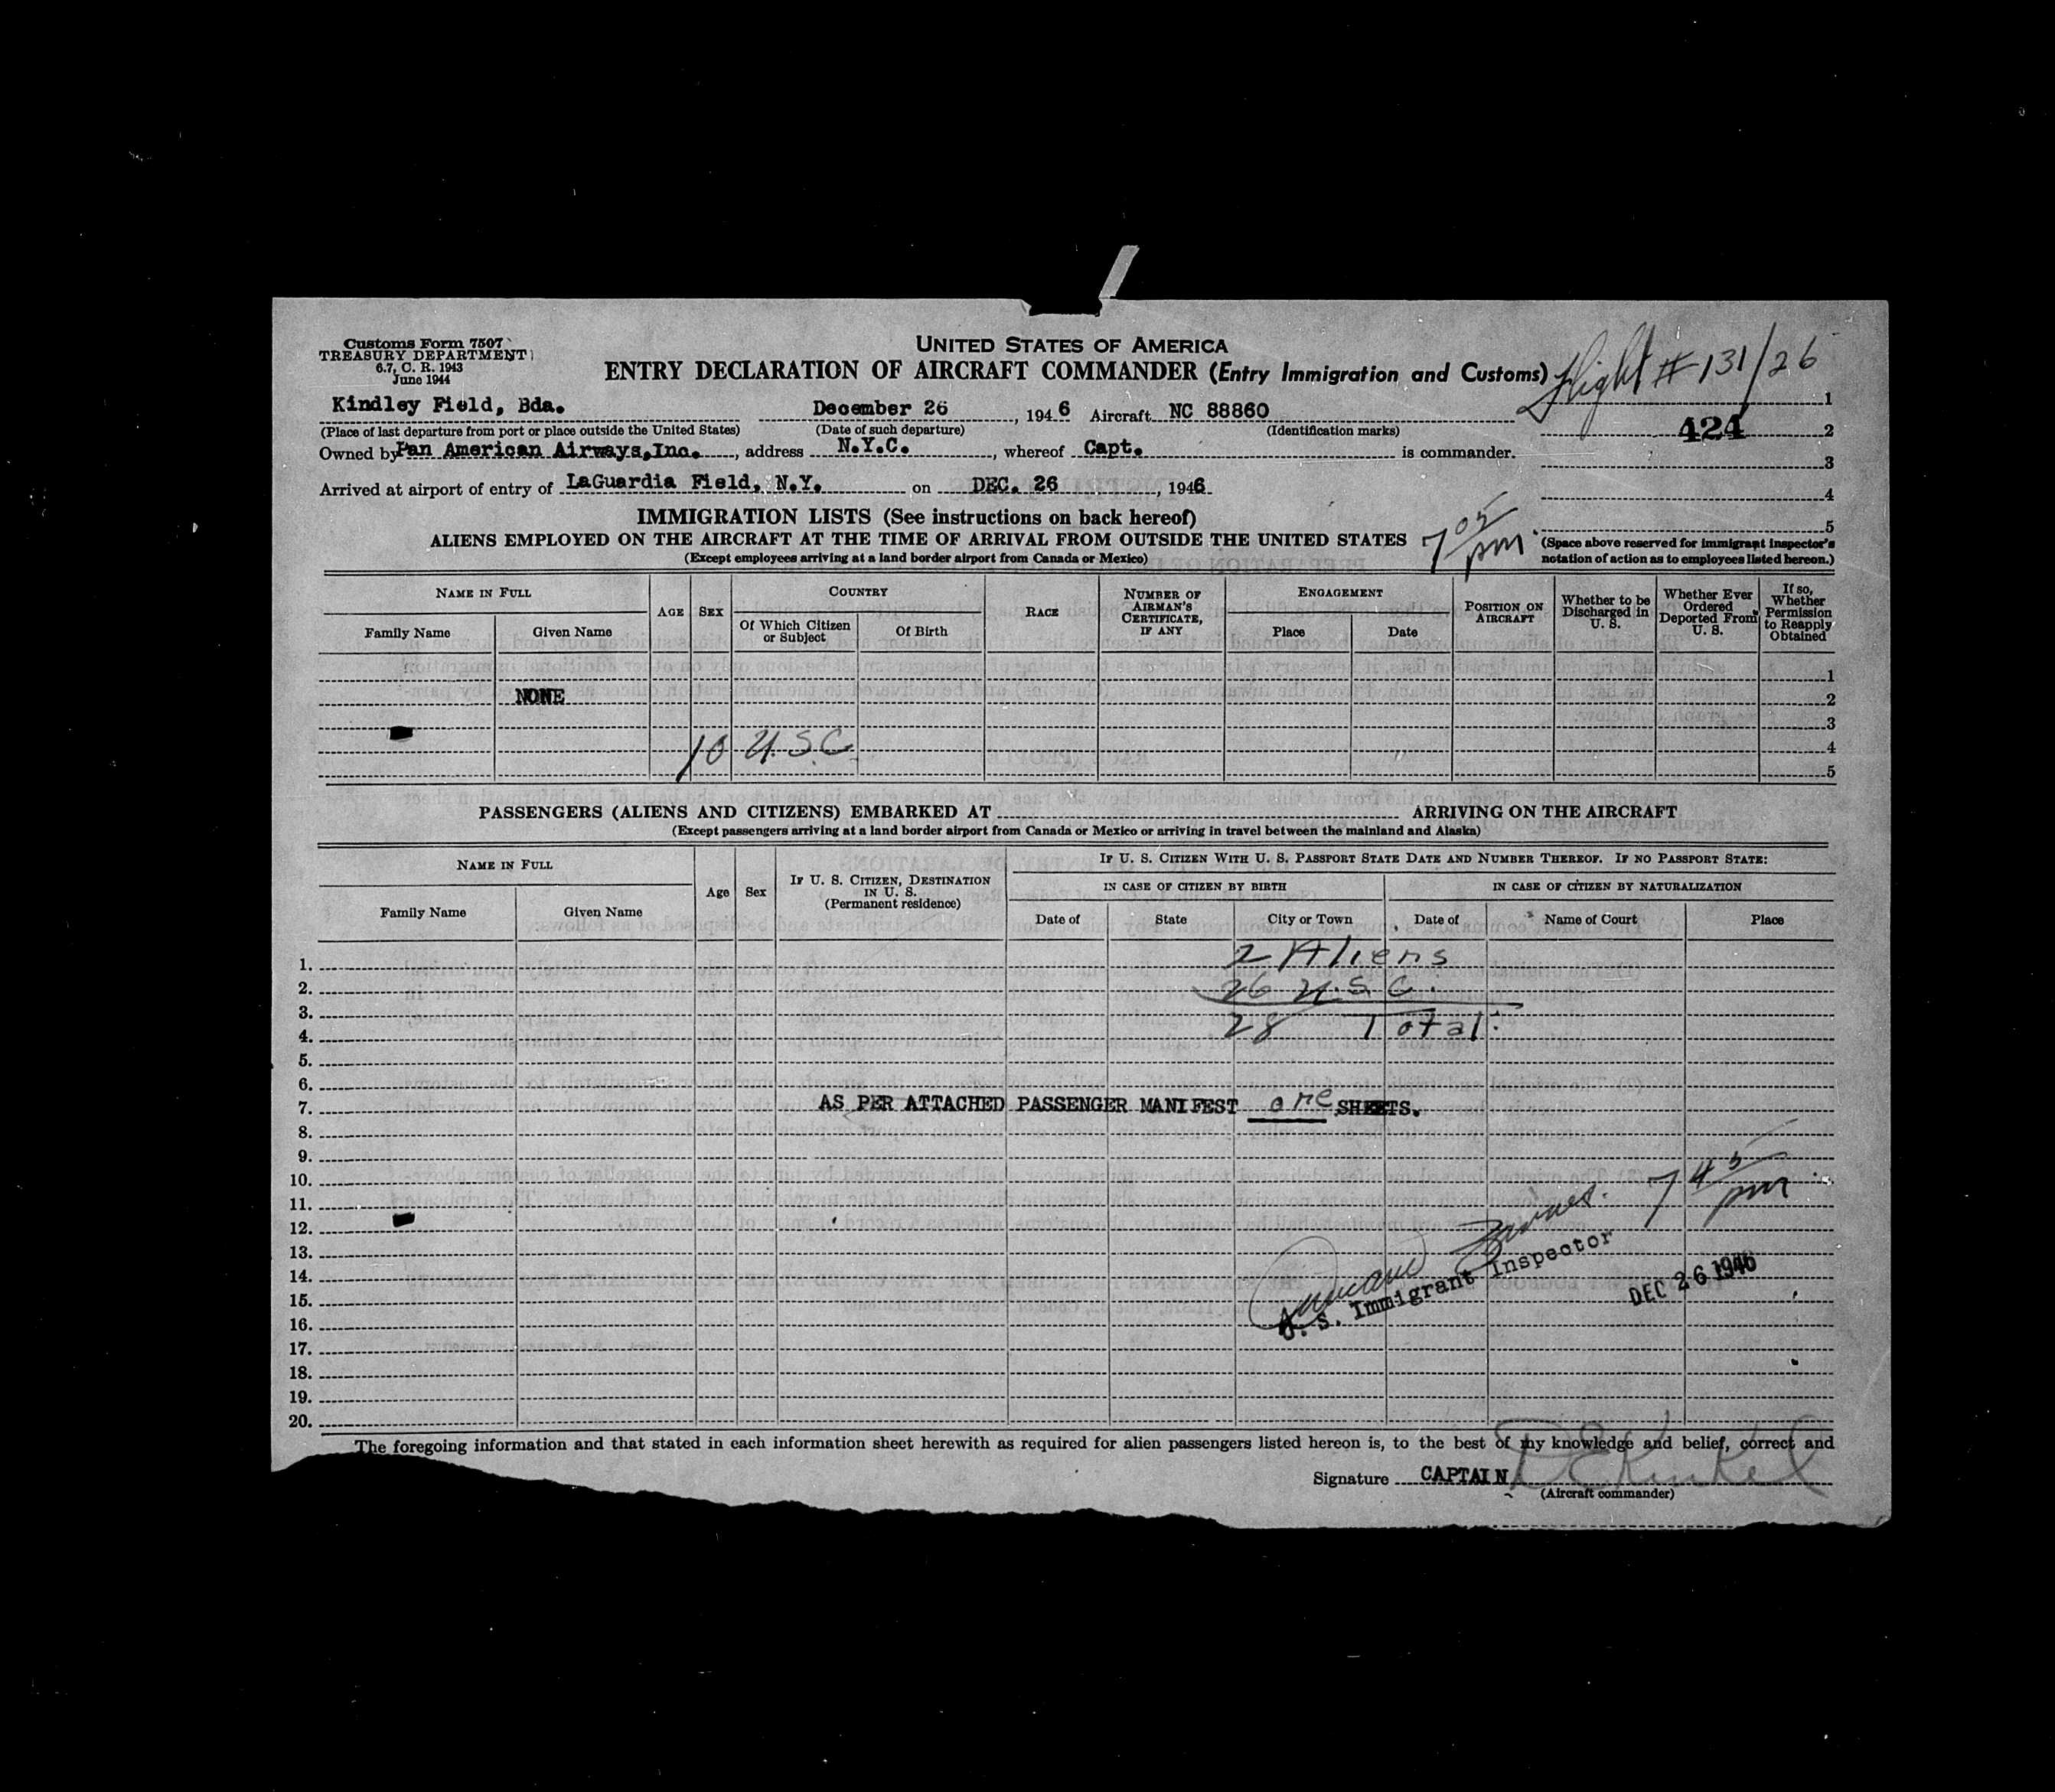 Customs Form 7507
TREASURY DEPARTMENT
6.7, C. R. 1943
June 1944
UNITED STATES OF AMERICA
ENTRY DECLARATION OF AIRCRAFT COMMANDER (Entry Immigration and Customs)
Flight # 131/26
Kindley Field, Bda. December 26, 1946 Aircraft NC 88860
1
(Place of last departure from port or place outside the United States) (Date of such departure) (Identification marks)
424 2
Owned by Pan American Airways, Inc., address N.Y.C., whereof Capt. is commander.
3
Arrived at airport of entry of LaGuardia Field, N.Y. on DEC. 26, 1946
4
IMMIGRATION LISTS (See instructions on back hereof)
5
ALIENS EMPLOYED ON THE AIRCRAFT AT THE TIME OF ARRIVAL FROM OUTSIDE THE UNITED STATES
7 05 pm
(Except employees arriving at a land border airport from Canada or Mexico)
(Space above reserved for immigrant inspector's
notation of action as to employees listed hereon.)
NAME IN FULL
Family Name
Given Name
AGE
SEX
COUNTRY
Of Which Citizen or Subject
Of Birth
RACE
NUMBER OF AIRMAN'S CERTIFICATE, IF ANY
ENGAGEMENT
Place
Date
POSITION ON AIRCRAFT
Whether to be Discharged in U. S.
Whether Ever Ordered Deported From U. S.
If so, Whether Permission to Reapply Obtained
1
NONE 2
3
10 U.S.C. 4
5
PASSENGERS (ALIENS AND CITIZENS) EMBARKED AT ARRIVING ON THE AIRCRAFT
(Except passengers arriving at a land border airport from Canada or Mexico or arriving in travel between the mainland and Alaska)
NAME IN FULL
Family Name
Given Name
Age
Sex
IF U. S. CITIZEN, DESTINATION IN U. S.
(Permanent residence)
IF U. S. CITIZEN WITH U. S. PASSPORT STATE DATE AND NUMBER THEREOF. IF NO PASSPORT STATE:
IN CASE OF CITIZEN BY BIRTH
IN CASE OF CITIZEN BY NATURALIZATION
Date of
State
City or Town
Date of
Name of Court
Place
1. 2 Aliens
2. 26 U.S.C.
3.
4. 28 Total:
5.
6.
7. AS PER ATTACHED PASSENGER MANIFEST one SHEETS.
8.
9.
10. 7 45 pm
11.
12.
13.
14.
U. S. Immigrant Inspector
DEC 26 1946
15.
16.
17.
18.
19.
20.
The foregoing information and that stated in each information sheet herewith as required for alien passengers listed hereon is, to the best of my knowledge and belief, correct and
Signature CAPTAIN D E Kinkel
(Aircraft commander)